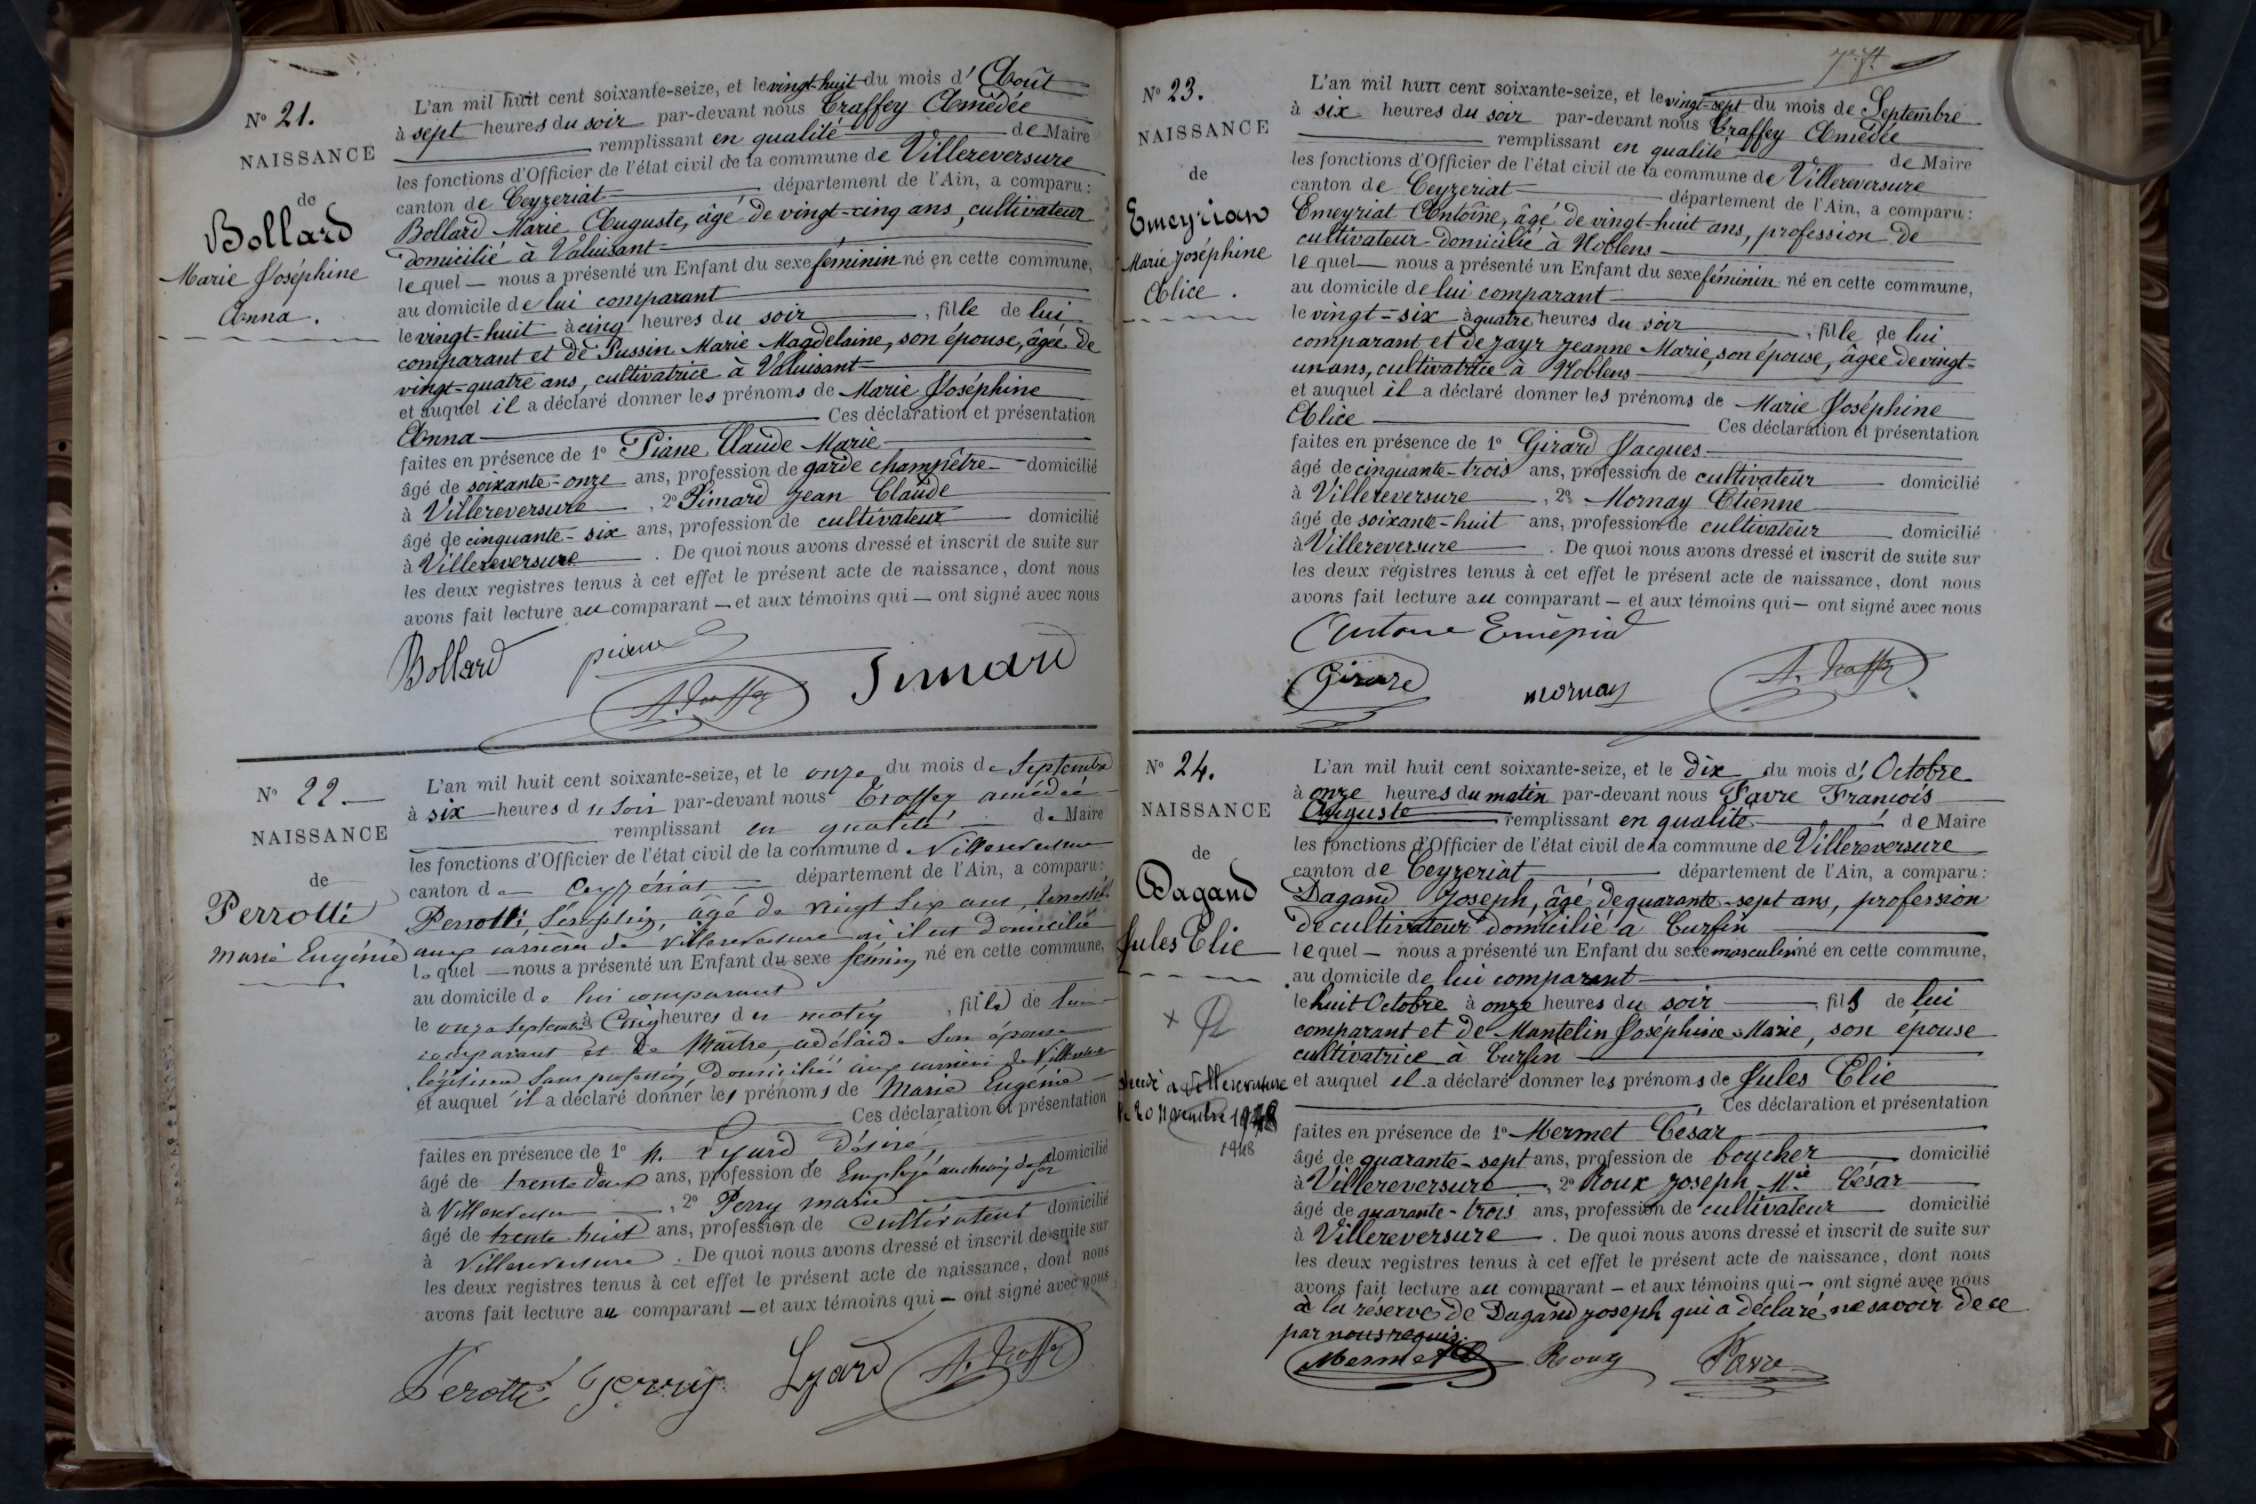 N° 21.
NAISSANCE
de
Bollard
Marie Joséphine
Anna.
L'an mil huit cent soixante-seize, et le vingt-huit du mois d' Août
à sept heures du soir par-devant nous Traffey Amédée
remplissant en qualité de Maire
les fonctions d'Officier de l'état civil de la commune de Villereversure
canton de Ceyzeriat département de l'Ain, a comparu :
Bollard Marie Auguste, âgé de vingt-cinq ans, cultivateur
domicilié à Valuisant
lequel — nous a présenté un Enfant du sexe féminin né en cette commune,
au domicile de lui comparant
le vingt-huit à cinq heures du soir , fille de lui
comparant et de Pussin Marie Magdelaine, son épouse, âgée de
vingt-quatre ans, cultivatrice à Valuisant
et auquel il a déclaré donner les prénoms de Marie Joséphine
Anna Ces déclaration et présentation
faites en présence de 1° Piane Claude Marie
âgé de soixante-onze ans, profession de garde champêtre domicilié
à Villereversure , 2° Simard Jean Claude
âgé de cinquante-six ans, profession de cultivateur domicilié
à Villereversure . De quoi nous avons dressé et inscrit de suite sur
les deux registres tenus à cet effet le présent acte de naissance, dont nous
avons fait lecture au comparant — et aux témoins qui — ont signé avec nous
Bollard piane Simard
A. Traffey
N° 22.
NAISSANCE
de
Perrotti
Marie Eugénie
L'an mil huit cent soixante-seize, et le onze du mois de Septembre
à six heures du soir par-devant nous Traffey amédée
remplissant en qualité de Maire
les fonctions d'Officier de l'état civil de la commune d Villereversure
canton de Ceyzériat département de l'Ain, a comparu :
Perrotti, Séraphin, âgé de vingt six ans,
aux carrières de Villereversure où il est domicilié
lequel — nous a présenté un Enfant du sexe féminin né en cette commune,
au domicile de lui comparant
le onze septembre à Cinq heures du matin , fille de lui
comparant et de Maître, adélaide son épouse
légitime sans profession, domiciliée aux carrières de Villereversure
et auquel il a déclaré donner les prénoms de Marie Eugénie
Ces déclaration et présentation
faites en présence de 1° M. Lyard Désiré,
âgé de trente deux ans, profession de Employé au chemin de fer domicilié
à Villereversure , 2° Perry marie
âgé de trente huit ans, profession de cultivateur domicilié
à Villereversure . De quoi nous avons dressé et inscrit de suite sur
les deux registres tenus à cet effet le présent acte de naissance, dont nous
avons fait lecture au comparant — et aux témoins qui — ont signé avec nous
Perotti Perry Lyard A. Traffey
N° 23.
NAISSANCE
de
Emeyriat
Marie Joséphine
Alice.
L'an mil huit cent soixante-seize, et le vingt-sept du mois de Septembre
à six heures du soir par-devant nous Traffey Amédée
remplissant en qualité de Maire
les fonctions d'Officier de l'état civil de la commune de Villereversure
canton de Ceyzeriat département de l'Ain, a comparu :
Emeyriat Antoine, âgé de vingt-huit ans, profession de
cultivateur domicilié à Noblens
lequel — nous a présenté un Enfant du sexe féminin né en cette commune,
au domicile de lui comparant
le vingt-six à quatre heures du soir , fille de lui
comparant et de Jayr Jeanne Marie, son épouse, âgée de vingt-
un ans, cultivatrice à Noblens
et auquel il a déclaré donner les prénoms de Marie Joséphine
Alice Ces déclaration et présentation
faites en présence de 1° Girard Jacques
âgé de cinquante-trois ans, profession de cultivateur domicilié
à Villereversure , 2° Mornay Etienne
âgé de soixante-huit ans, profession de cultivateur domicilié
à Villereversure . De quoi nous avons dressé et inscrit de suite sur
les deux registres tenus à cet effet le présent acte de naissance, dont nous
avons fait lecture au comparant — et aux témoins qui — ont signé avec nous
Antoine Emépiad
Girard mornay A. Traffey
N° 24.
NAISSANCE
de
Dagand
Jules Elie
décédé à Villereversure
le 20 novembre 1948
1948
L'an mil huit cent soixante-seize, et le dix du mois d' Octobre
à onze heures du matin par-devant nous Favre François
Auguste remplissant en qualité de Maire
les fonctions d'Officier de l'état civil de la commune de Villereversure
canton de Ceyzeriat département de l'Ain, a comparu :
Dagand Joseph, âgé de quarante-sept ans, profession
de cultivateur domicilié à Turfin
lequel — nous a présenté un Enfant du sexe masculin né en cette commune,
au domicile de lui comparant
le huit Octobre à onze heures du soir fils de lui
comparant et de Mantelin Joséphine Marie, son épouse
cultivatrice à Turfin
et auquel il a déclaré donner les prénoms de Jules Elie
Ces déclaration et présentation
faites en présence de 1° Mermet César
âgé de quarante-sept ans, profession de boucher domicilié
à Villereversure , 2° Roux Joseph Mie César
âgé de quarante-trois ans, profession de cultivateur domicilié
à Villereversure . De quoi nous avons dressé et inscrit de suite sur
les deux registres tenus à cet effet le présent acte de naissance, dont nous
avons fait lecture au comparant — et aux témoins qui — ont signé avec nous
à la réserve de Dagand Joseph qui a déclaré ne savoir de ce
par nous requis.
Mermet Roux Favre